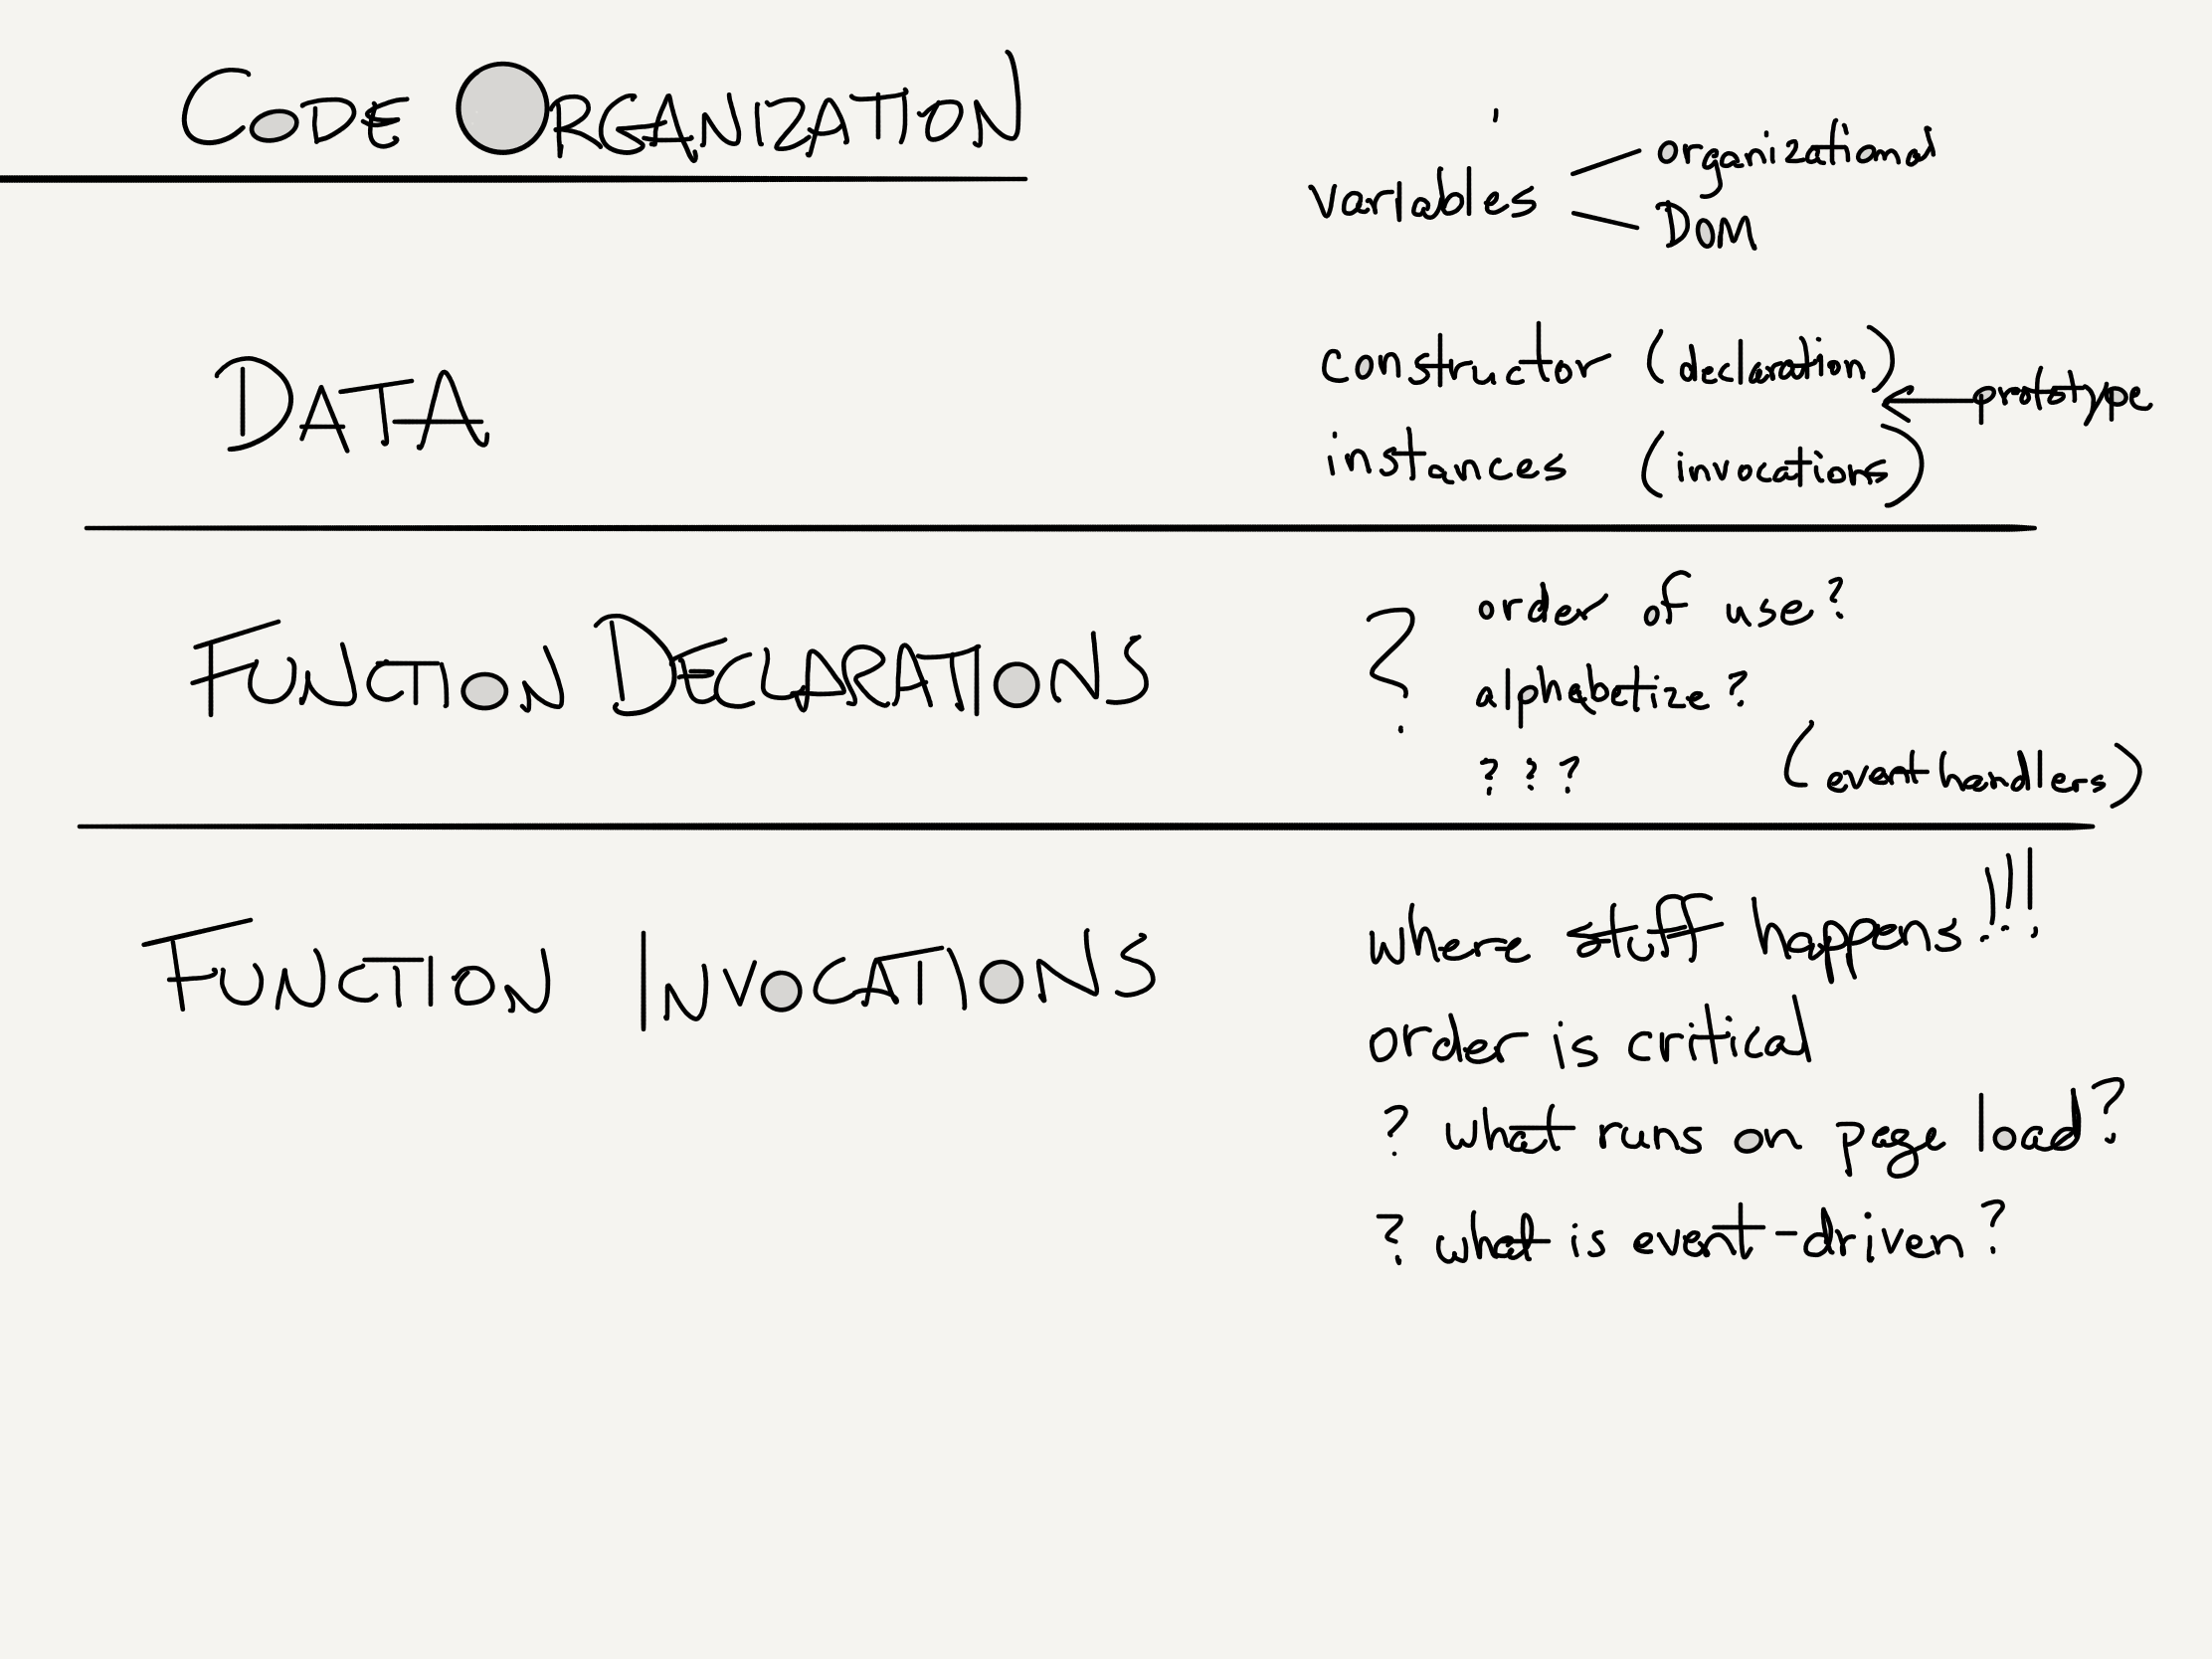 CODE ORGANIZATION
variables
organizational
DOM
DATA
constructor (declaration)
prototype
instances (invocations)
FUNCTION DECLARATIONS
?
order of use?
alphabetize?
? ? ?
(event handlers)
FUNCTION INVOCATIONS
where stuff happens!!!
order is critical
? what runs on page load?
? what is event-driven?